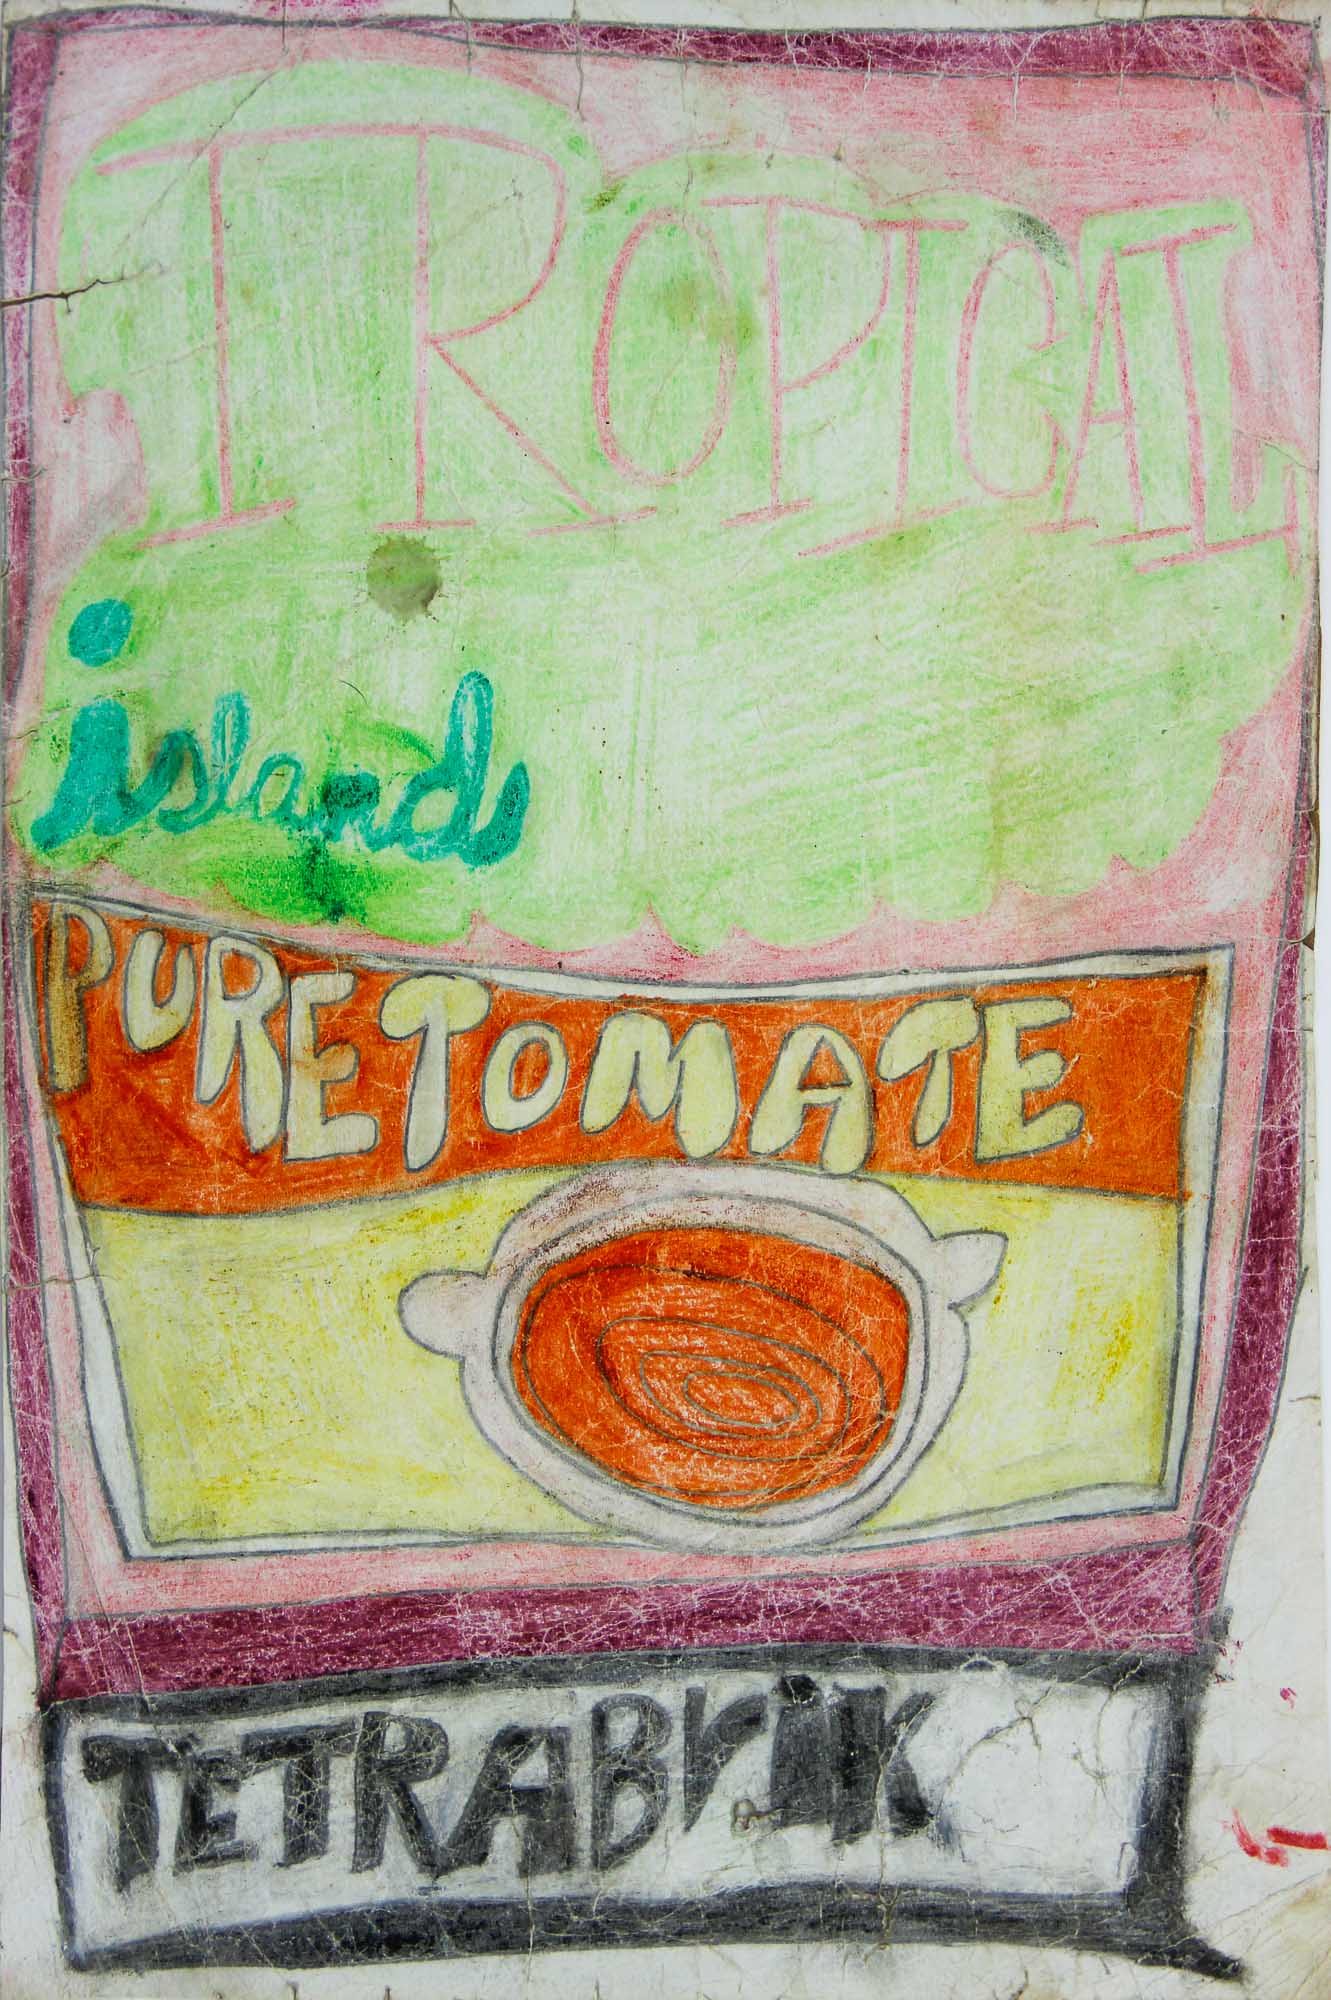 TROPICAL
island
PURE TOMATE
TETRABrik